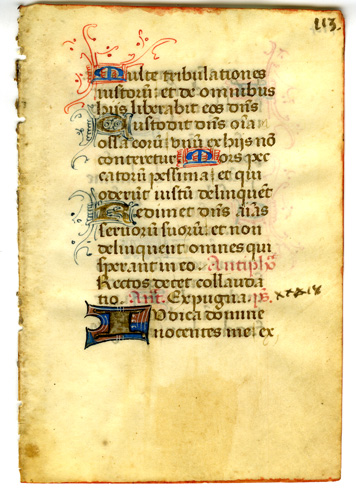 113.
Multe tribulationes
iustorũ et de omnibus
hijs liberabit eos dñs
Custodit dñs oĩa
ossa eorũ vnũ ex hijs nõ
conteretur Mors pec
catorũ pessima et qui
oderũt iustũ delinquẽt
Redimet dñs aĩas
seruorũ suorũ et non
delinquent omnes qui
sperant in eo. Antiphõ
Rectos decet collauda
tio. Añt. Expugna. p̃s.
Iudica domine
nocentes me ex